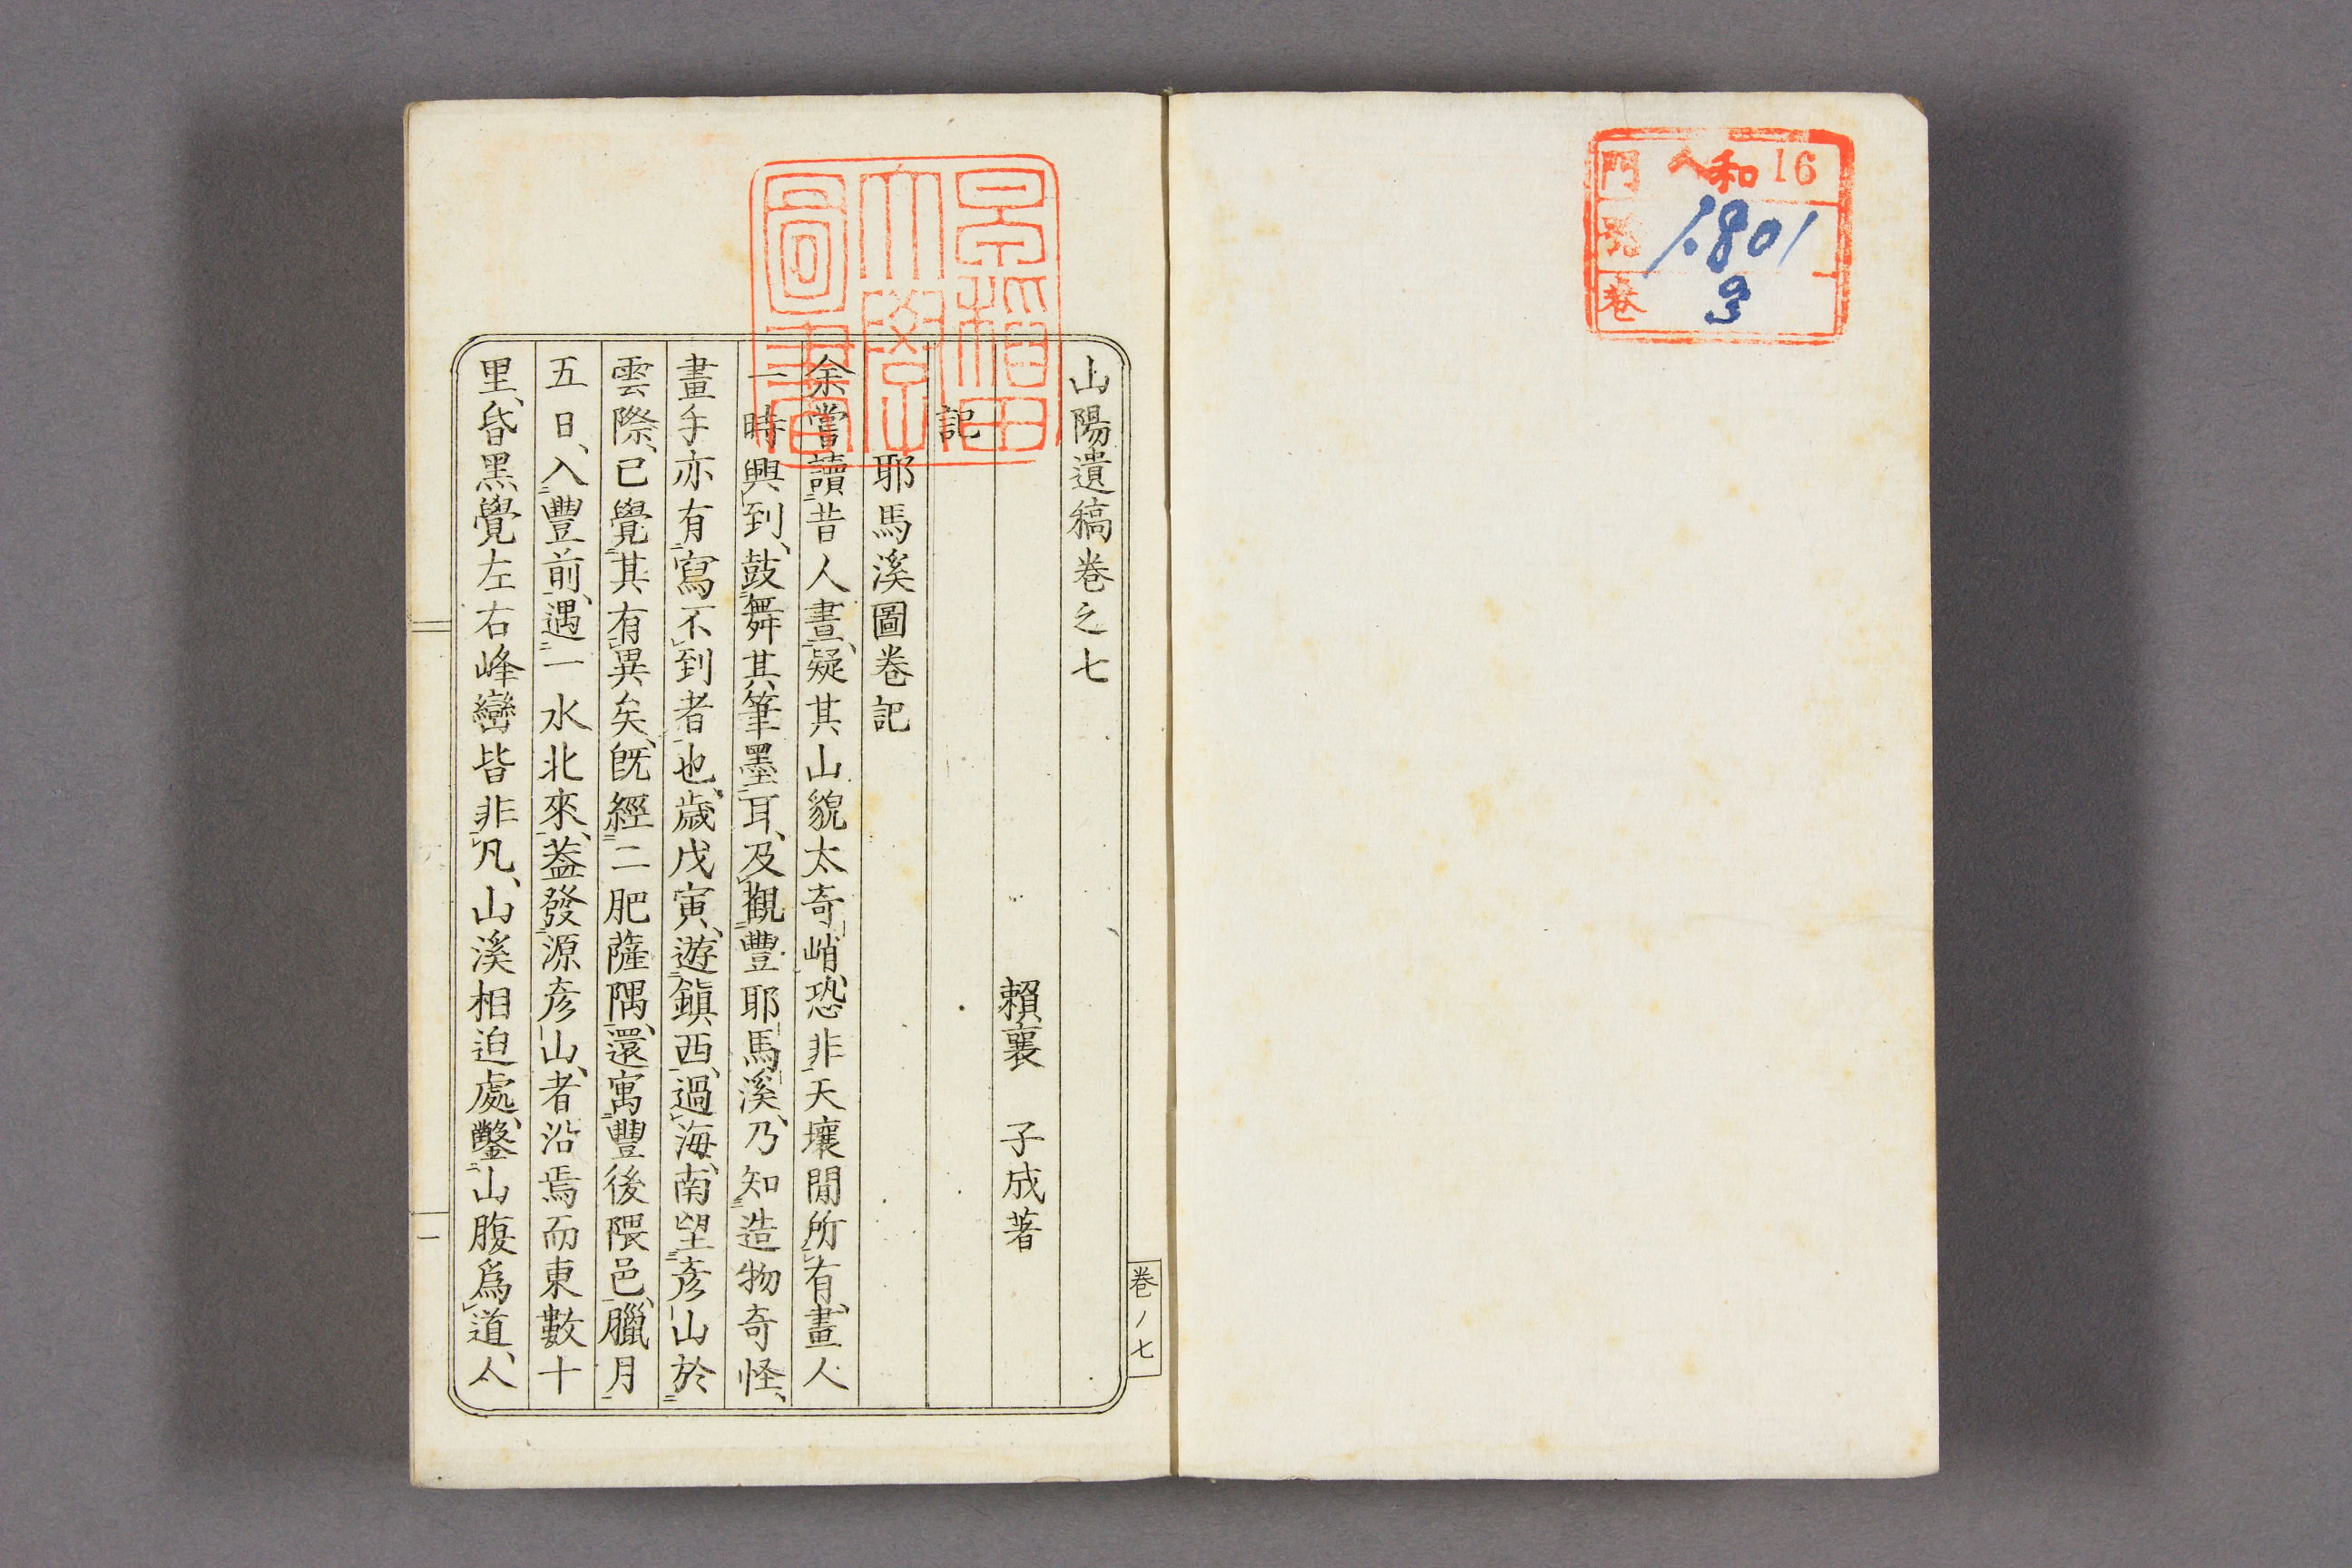 門 和 16
號 1801
巻 3
早稲田
大學
圖書
山陽遺稿卷之七
賴襄 子成著
記
耶馬溪圖卷記
余嘗讀昔人畫、疑其山貌太奇峭、恐非天壤間所有、畫人
一時興到、鼓舞其筆墨耳、及觀豐耶馬溪、乃知造物奇怪、
畫手亦有寫不到者也、歲戊寅、遊鎭西、過海、南望彥山於
雲際、已覺其有異矣、既經二肥薩隅、還寓豐後隈邑、臘月
五日、入豐前、遇一水北來、蓋發源彥山、者沿焉而東數十
里、昏黑覺左右峰巒皆非凡、山溪相迫處、鑿山腹爲道、人
卷ノ七
一